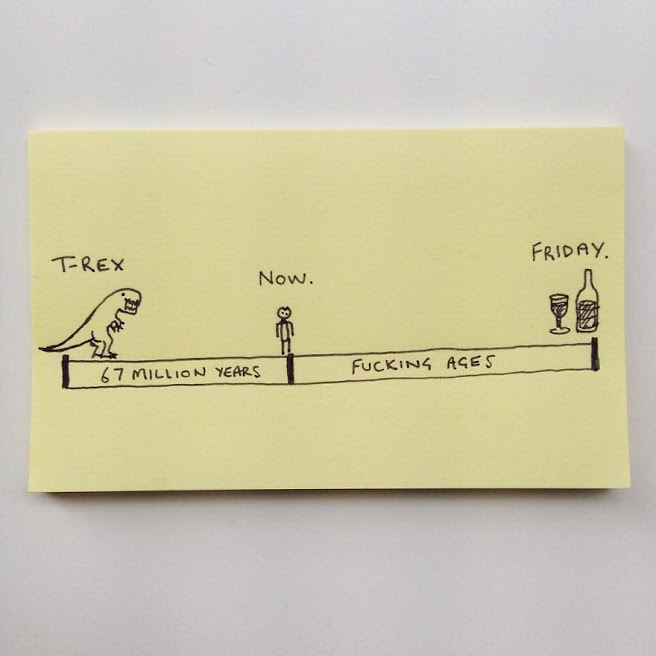 T-REX
NOW.
FRIDAY.
67 MILLION YEARS
FUCKING AGES